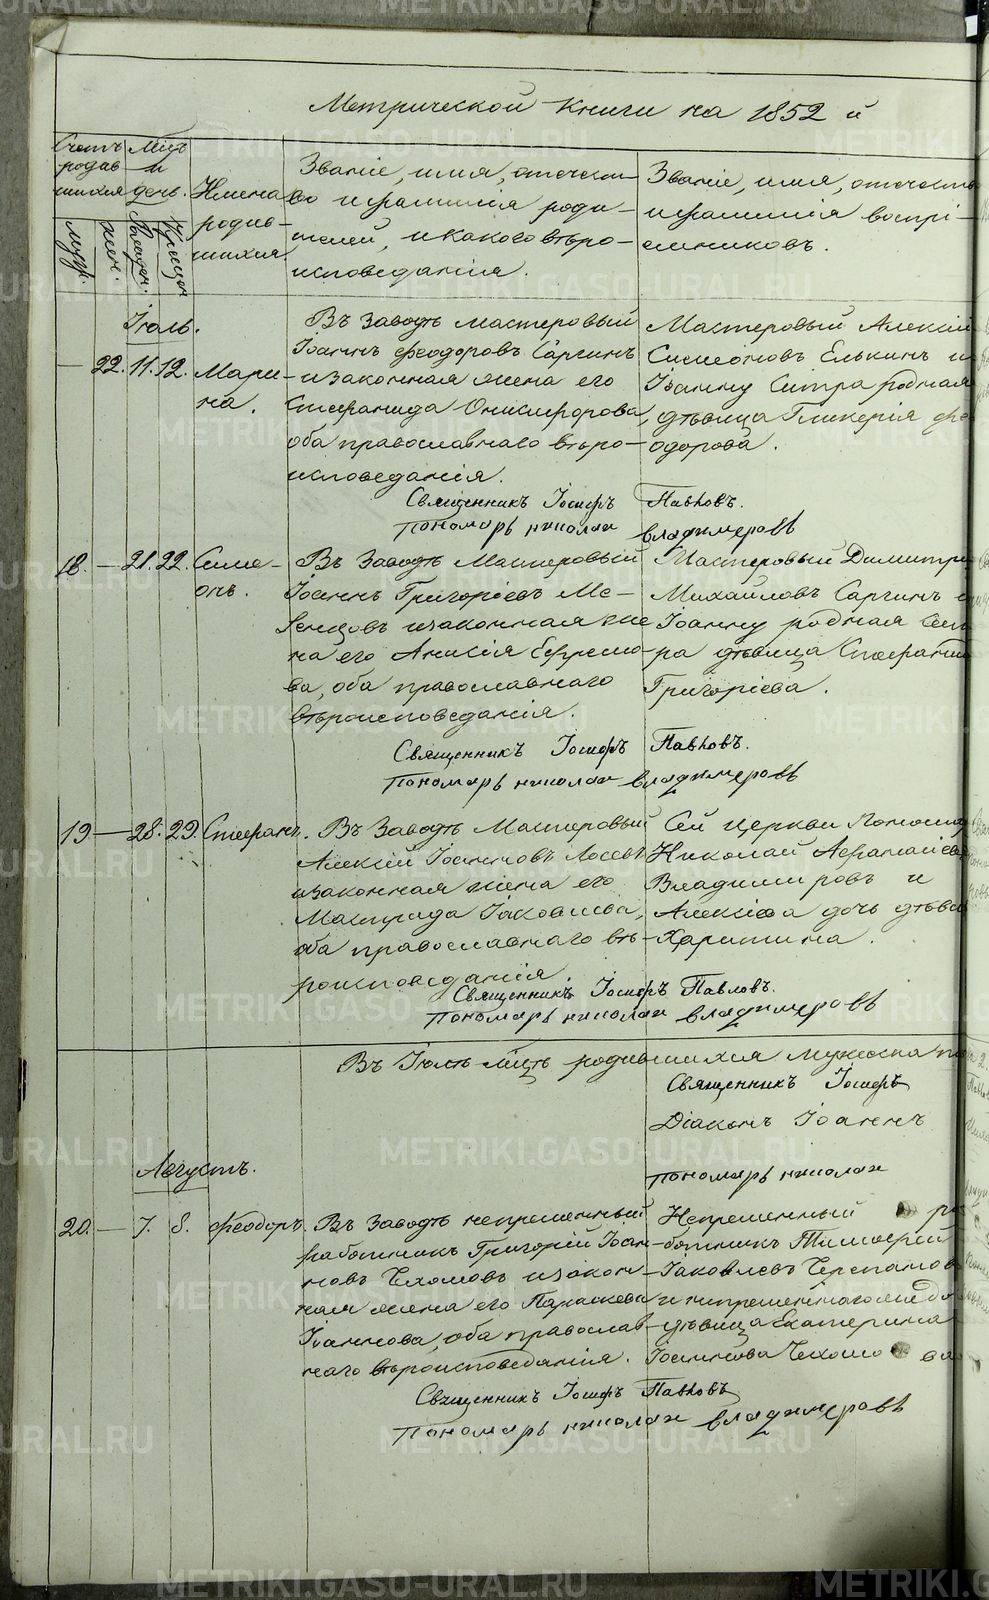 Метрической книги на 1852 й
Счетъ родившихся
муж.
жен.
Мѣцъ и день.
Рожден.
Крещен.
Имена родившихся.
Званіе, имя, отечество и фамилія родителей, и какого вѣроисповеданія.
Званіе, имя, отечество и фамилія воспріемниковъ.
Іюль.
— 22. 11. 12. Мари-
на.
Въ Заводѣ мастеровый
Іоаннъ Феодоровъ Саргинъ
и законная жена его
Стефанида Оникифорова,
оба православнаго вѣро-
исповеданія.
Мастеровый Алексій
Симеоновъ Елькинъ и
Іоанну Сестра родная
дѣвица Гликерія Фе
одорова.
Священникъ Іосифъ Павловъ.
Пономарь Николай Владимеровъ
18. — 21. 22. Симе-
онъ.
Въ Заводѣ Мастеровый
Іоаннъ Григоріевъ Ме-
зенцовъ и законная же
на его Анисія Ефремо-
ва, оба православнаго
вѣроисповеданія.
Мастеровый Димитрі
Михайловъ Саргинъ и
Іоанну родная Сест
ра дѣвица Стефанид
Григоріева.
Священникъ Іосифъ Павловъ.
Пономарь Николай Владимеровъ
19 — 28. 29. Стефанъ.
Въ Заводѣ Мастеровый
Алексій Іоанновъ Лосевъ
и законная жена его
Матрида Іаковлева,
оба православнаго вѣ-
роисповеданія.
Сей церкви Пономар
Николай Афанасіев
Владимировъ и
Алексіова дочь дѣвиц
Харитина.
Священникъ Іосифъ Павловъ.
Пономарь Николай Владимеровъ
Въ Іюлѣ Мѣцѣ родившихся мужеска по
Священникъ Іосифъ
Діаконъ Іоаннъ
Пономарь Николай
Августъ.
20. — 7. 8. Феодоръ.
Въ Заводѣ непременный
работникъ Григорій Іоан-
новъ Чехомовъ и закон-
ная жена его Параскева
Іоаннова, оба православ-
наго вѣроисповеданія.
Непременный ра
ботникъ Тимофей
Іаковлевъ Черепанов
и непременнаго
дѣвица Екатерина
Іоаннова Чехомо ва
Священникъ Іосифъ Павловъ
Пономарь Николай Владимеровъ
METRIKI.GASO-URAL.RU